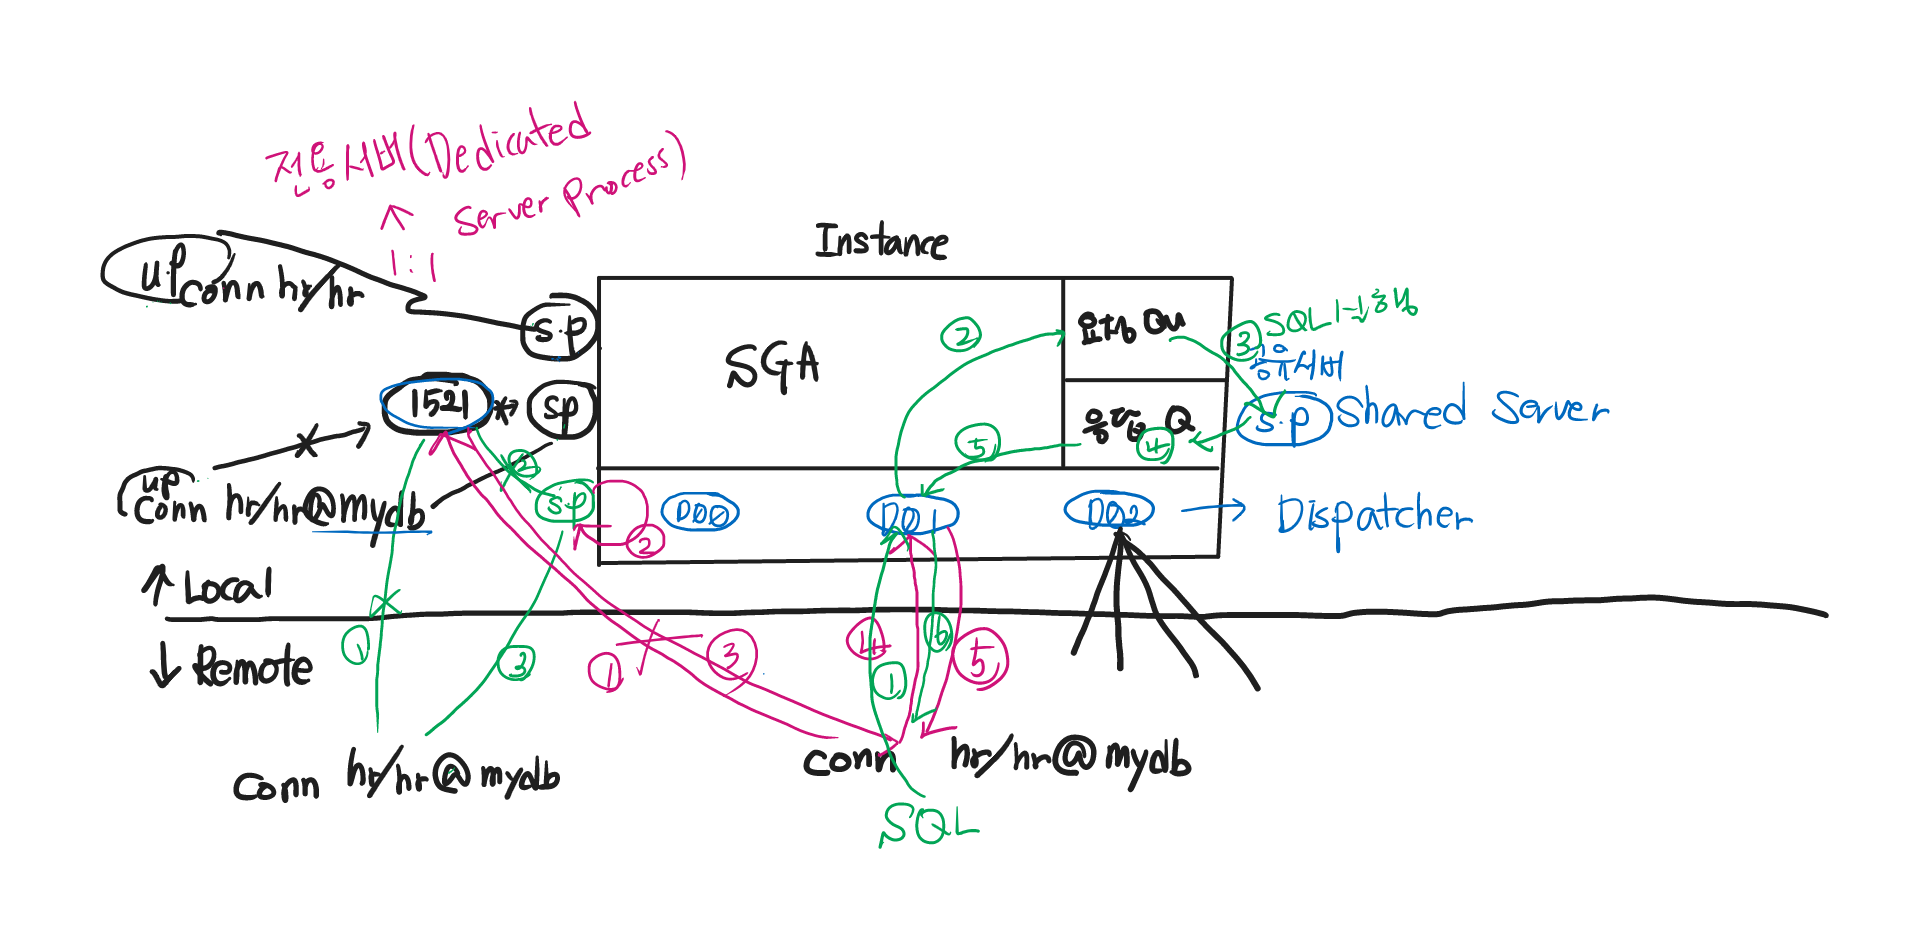 전용서버(Dedicated
Server Process)
1:1
Instance
up
conn hr/hr
s.p
SGA
요청 Qu
응답 Q
②
③ SQL
공유서버
s.p Shared Server
④
⑤
1521
sp
②
up
conn hr/hr@mydb
s.p
②
D00
D01
D02
Dispatcher
↑ Local
↓ Remote
①
③
①
③
④
①
⑥
⑤
conn hr/hr@mydb
conn hr/hr@mydb
SQL